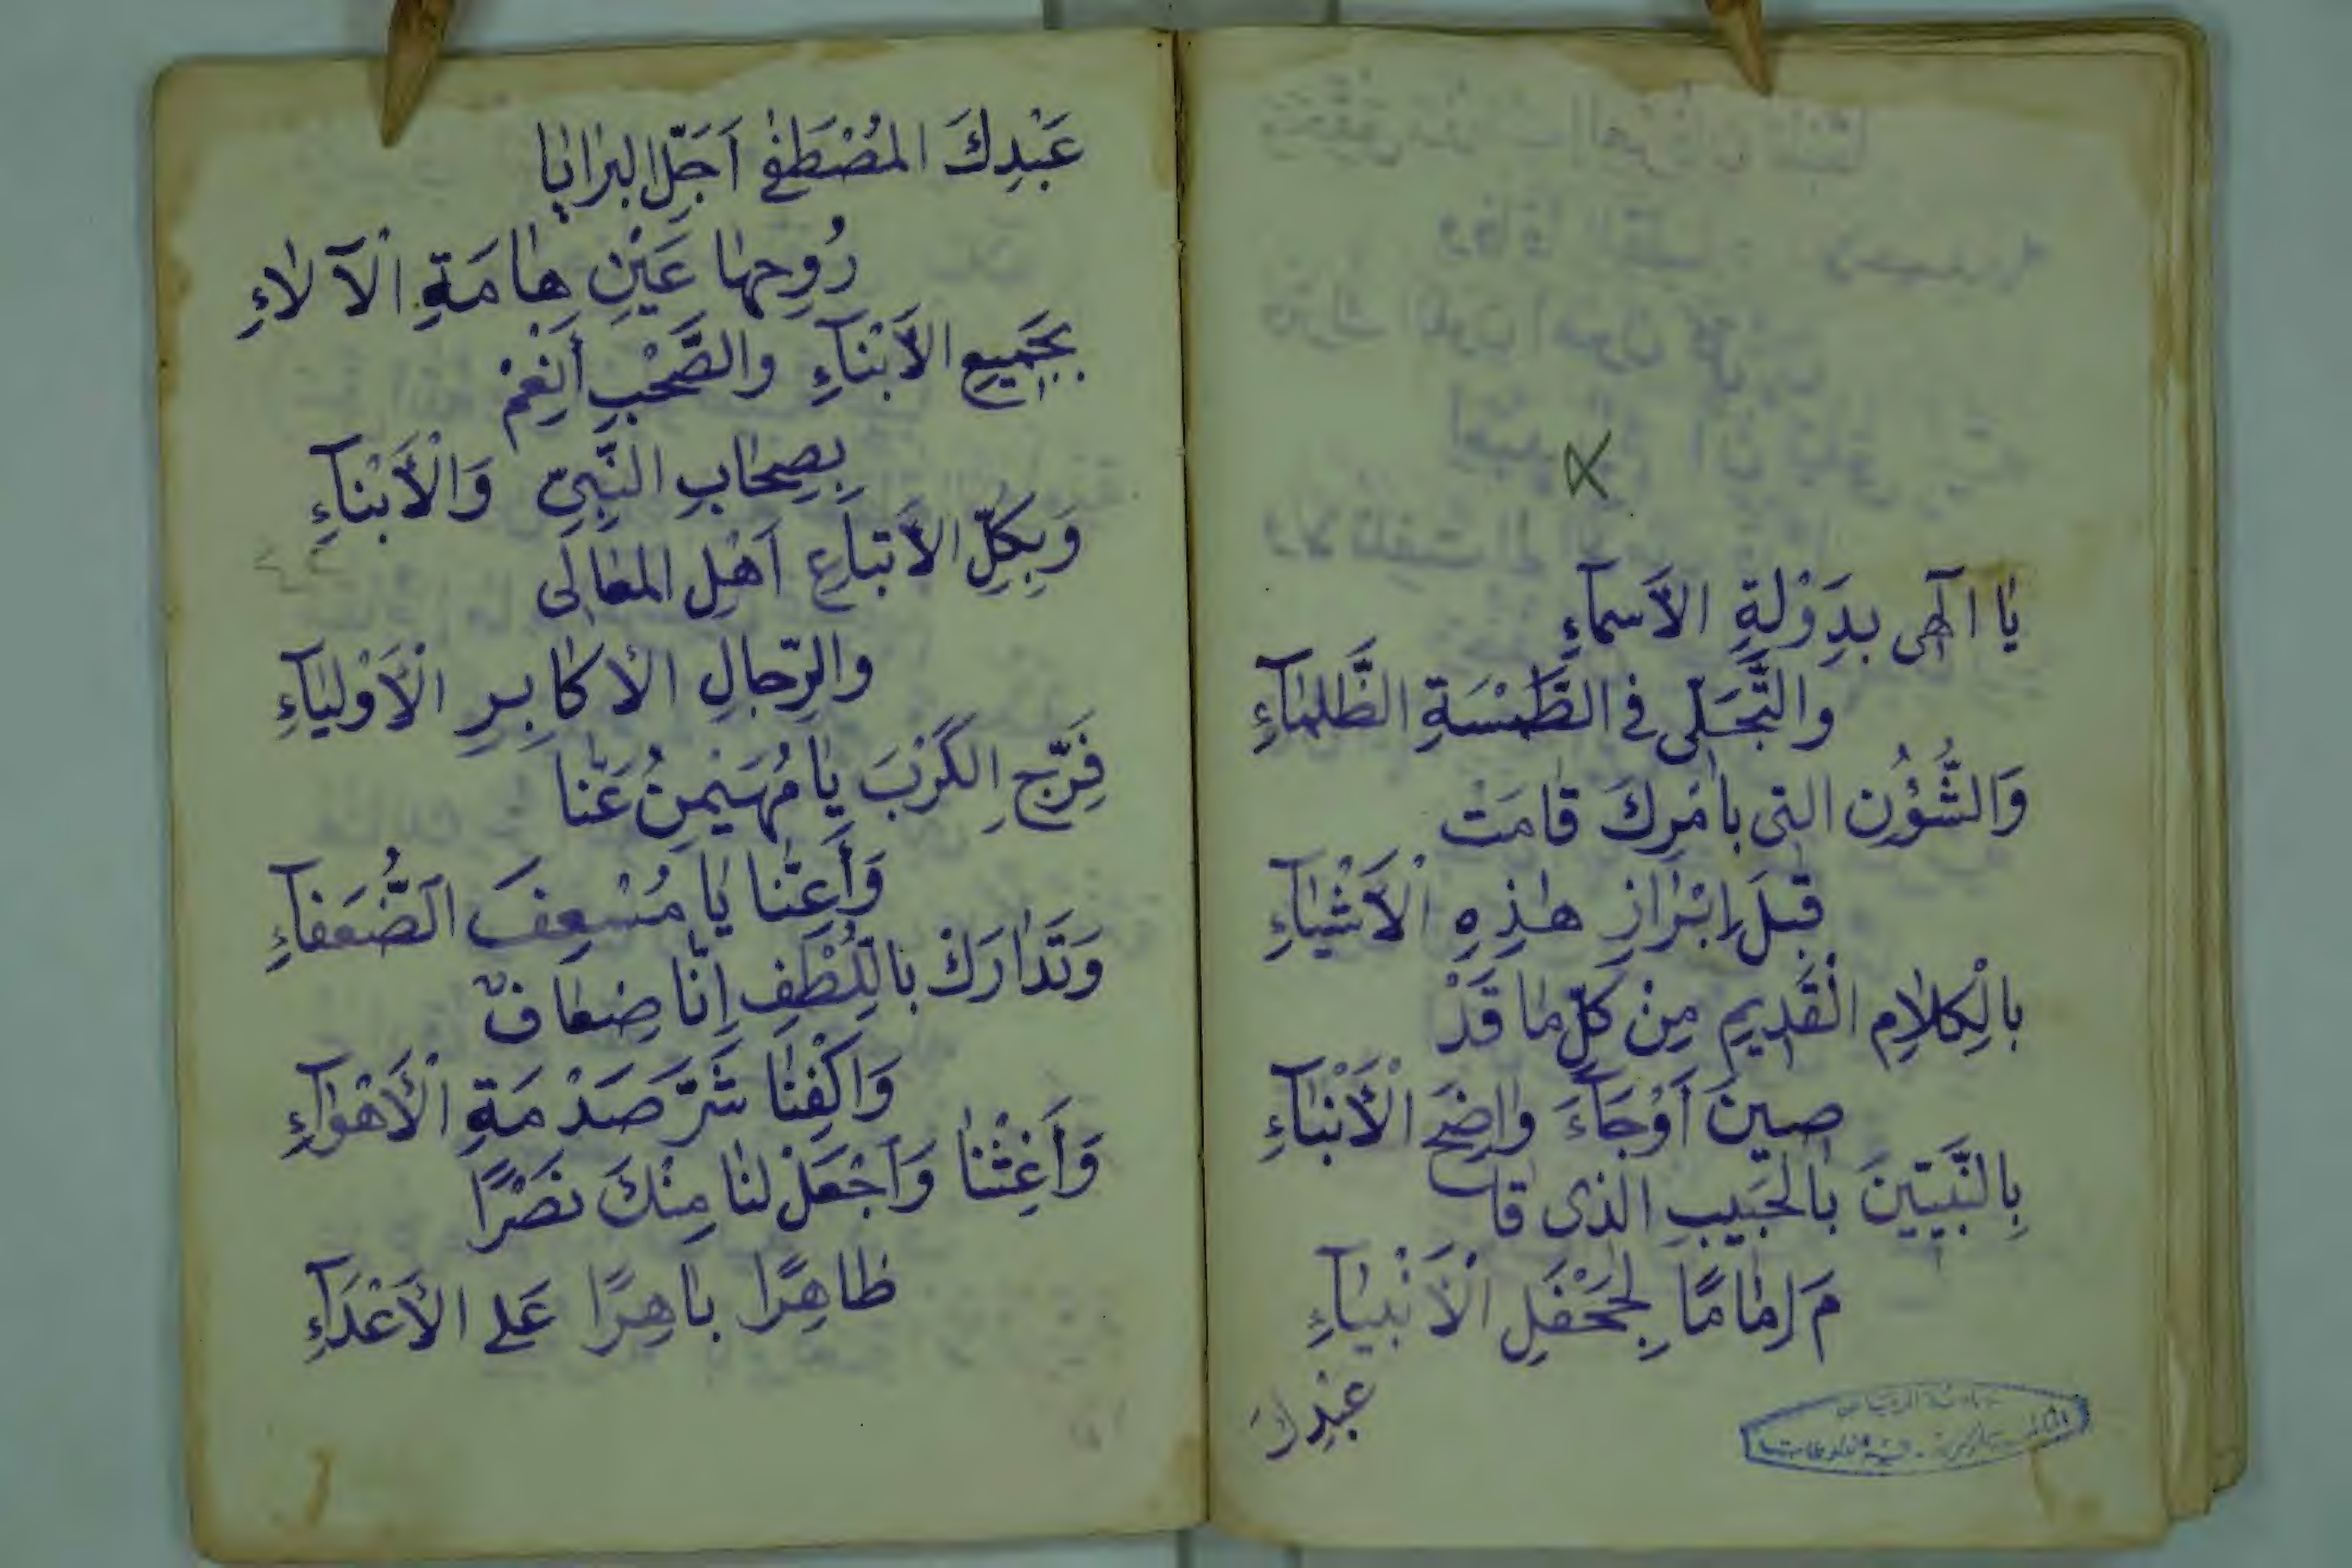 يَا الٓهى بِدَوْلَةِ الأَسمآءِ
والتَّجَلّى فى الطَّمْسَةِ الظَّلمَآءِ
وَالشُّؤُنِ التى بامْرِكَ قامَتْ
قبْلَ اِبْرَازِ هٰذِهِ الْأَشْيَآءِ
بالْكلامِ الْقَدِيمِ مِنْ كلِّ مٰا قَدْ
صينَ اَوْجَآءَ واضِحَ الْأَنْبٰآءِ
بِالنَّبيّينَ بالحَبيبِ الذى قا
مَ اِمٰامًا لِجَحْفَلِ الْأَنْبيآءِ
عَبْدِكَ
عَبْدِكَ المُصْطَفٰى اَجَلِّ البرايا
رُوحِهٰا عَيْنِ هٰامَةِ الْآلاءِ
بجَميعِ الأَبْنآءِ والصَّحْبِ أَنْعِمْ
بِصِحٰابِ النَّبِىِّ وَالْأَبْنآءِ
وَبِكلِّ الأَتباَعِ اَهْلِ المعَالى
والرِّجالِ الأكابِرِ الْأَوْليَآءِ
فَرِّجِ الكَرْبَ يٰا مُهَيْمِنُ عَنّا
وَأَعِنّا يٰا مُسْعِفَ الضُّعَفآءِ
وَتَدٰارَكْ باللُّطْفِ اِنّا ضِعٰافٌ
وَاكْفِنٰا شَرَّ صَدْمَةِ الْأَهْوٰآءِ
وَأَغِثْنٰا وَاجْعَلْ لنٰا مِنْكَ نصْرًا
ظاهِرًا باهِرًا عَلى الأَعْدَآءِ